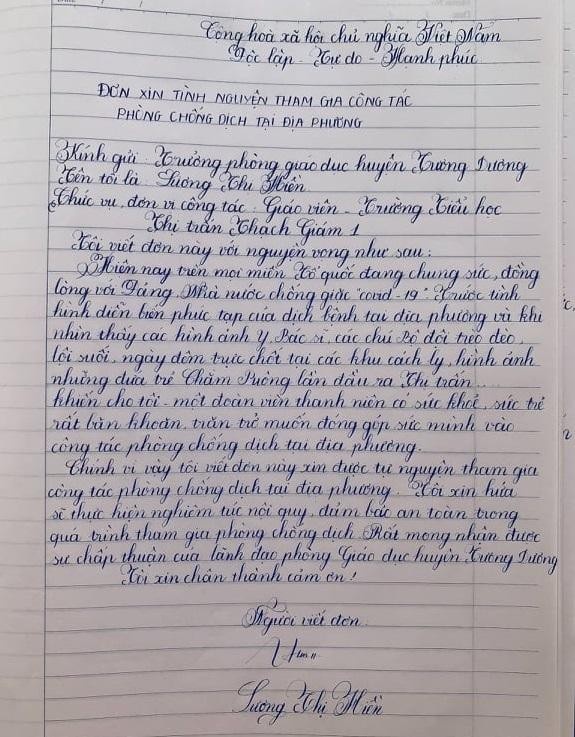 Cộng hoà xã hội chủ nghĩa Việt Nam
Độc lập - Tự do - Hạnh phúc
ĐƠN XIN TÌNH NGUYỆN THAM GIA CÔNG TÁC
PHÒNG CHỐNG DỊCH TẠI ĐỊA PHƯƠNG
Kính gửi: Trưởng phòng giáo dục huyện Tương Dương
Tên tôi là: Lương Thị Hiền
Chức vụ, đơn vị công tác: Giáo viên - Trường Tiểu học
Thị trấn Thạch Giám 1
Tôi viết đơn này với nguyện vọng như sau:
Hiện nay trên mọi miền Tổ quốc đang chung sức, đồng
lòng với Đảng, Nhà nước chống giặc "covid-19". Trước tình
hình diễn biến phức tạp của dịch bệnh tại địa phương và khi
nhìn thấy các hình ảnh Y, Bác sĩ, các chú Bộ đội trèo đèo,
lội suối, ngày đêm trực chốt tại các khu cách ly, hình ảnh
những đứa trẻ Chăm Puông lần đầu ra Thị trấn...
khiến cho tôi - một đoàn viên thanh niên có sức khoẻ, sức trẻ
rất băn khoăn, trăn trở muốn đóng góp sức mình vào
công tác phòng chống dịch tại địa phương.
Chính vì vậy tôi viết đơn này xin được tự nguyện tham gia
công tác phòng chống dịch tại địa phương. Tôi xin hứa
sẽ thực hiện nghiêm túc nội quy, đảm bảo an toàn trong
quá trình tham gia phòng chống dịch. Rất mong nhận được
sự chấp thuận của lãnh đạo phòng Giáo dục huyện Tương Dương
Tôi xin chân thành cảm ơn!
Người viết đơn
Lương Thị Hiền